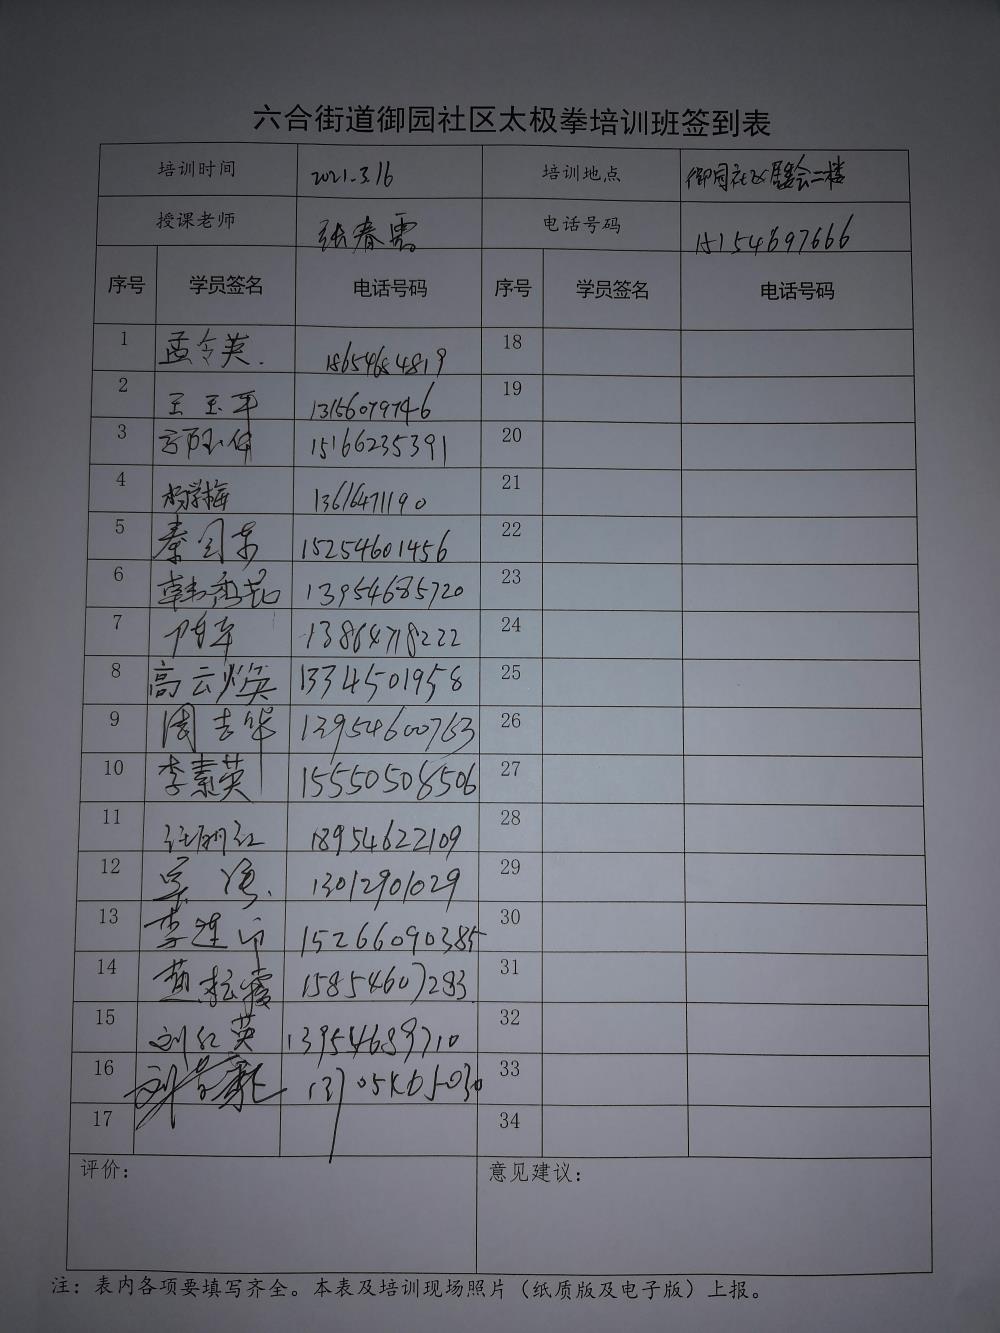 六合街道御园社区太极拳培训班签到表
培训时间 2021.3.16 培训地点 御园社区居委会二楼
授课老师 张春霞 电话号码 15154697666
序号 学员签名 电话号码 序号 学员签名 电话号码
1 孟令英. 18654684819 18
2 王玉平 13156079746 19
3 15166235391 20
4 杨学梅 13616471190 21
5 秦风东 15254601456 22
6 韩秀花 13954685720 23
7 13864718222 24
8 高云焕英 1334501958 25
9 周吉华 13954600763 26
10 李素英 15550508506 27
11 任丽红 18954622109 28
12 13012901029 29
13 李连 15266090385 30
14 赵桂霞 15854607283 31
15 刘红英 13954689710 32
16 刘 33
17 34
评价： 意见建议：
注：表内各项要填写齐全。本表及培训现场照片（纸质版及电子版）上报。